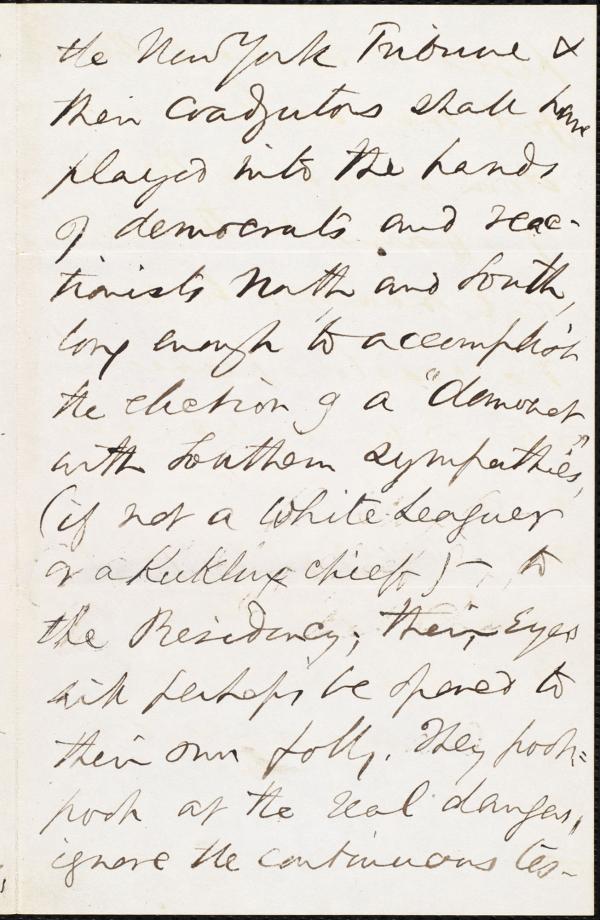 the New York Tribune &
their coadjutors shall have
played into the hands
of democrats and reac-
tionists North and South,
long enough to accomplish
the election of a "democrat
with Southern sympathies,"
(if not a White Leaguer
or a Kuklux chief) - to
the Presidency, their eyes
will perhaps be opened to
their own folly. They pooh=
pooh at the real danger,
ignore the continuous tes-